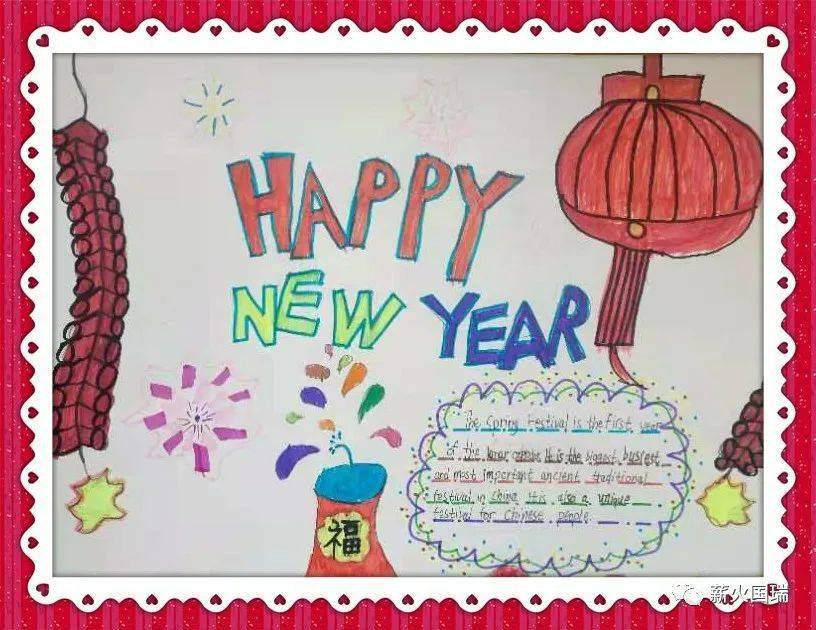 HAPPY
NEW YEAR
The Spring Festival is the first year
of the lunar It is the biggest busiest
and most important ancient traditional
festival in China It is also a unique
festival for Chinese people
福
薪火国瑞